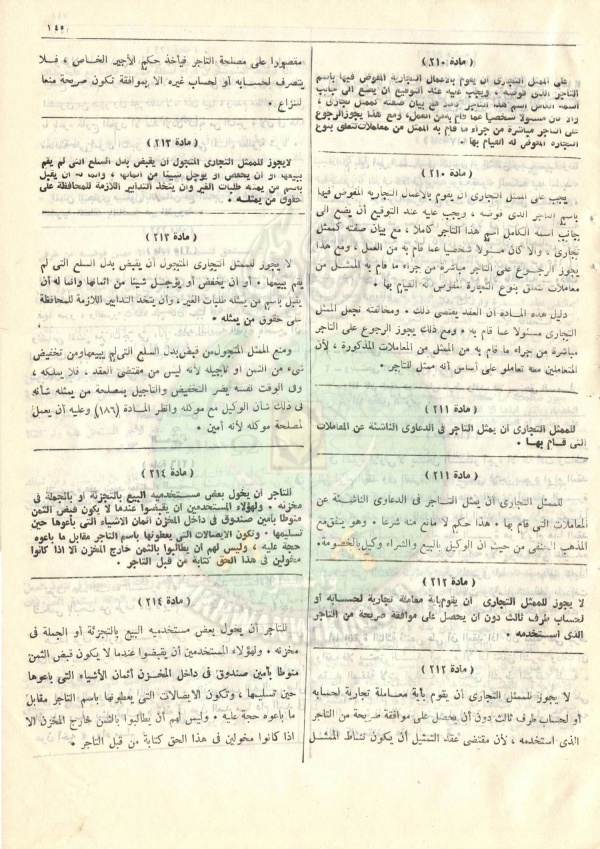 ١٤٥
( مادة ٢١٠ )
على الممثل التجارى أن يقوم بالأعمال التجارية المفوض فيها باسم
التاجر الذى فوضه ، ويجب عليه عند التوقيع ان يضع الى جانب
اسمه الكامل اسم هذا التاجر كاملا مع بيان صفته كممثل تجارى ،
والا كان مسئولا شخصيا عما قام به من العمل، ومع هذا يجوز الرجوع
على التاجر مباشرة من جراء ما قام به الممثل من معاملات تتعلق بنوع
التجارة المفوض له القيام بها ٠
( مادة ٢١٠ )
يجب على الممثل التجارى أن يقوم بالأعمال التجارية المفوض فيها
باسم التاجر الذى فوضه ، ويجب عليه عند التوقيع أن يضع الى
بجانب اسمه الكامل اسم هذا التاجر كاملا ، مع بيان صفته كممثل
تجارى ، والا كان مسئولا شخصيا عما قام به من العمل ، ومع هذا
يجوز الرجوع على التاجر مباشرة من جراء ما قام به الممثل من
معاملات تتعلق بنوع التجارة المفوض له القيام بها ٠
دليل هذه المادة أن العقد يقتضى ذلك ٠ ومخالفته تجعل الممثل
التجارى مسئولا عما قام به ٠ ومع ذلك يجوز الرجوع على التاجر
مباشرة من جراء ما قام به من الممثل من المعاملات المذكورة ، لأن
المتعاملين معه تعاملو على أساس أنه ممثل للتاجر ٠
( مادة ٢١١ )
للممثل التجارى أن يمثل التاجر فى الدعاوى الناشئة عن المعاملات
التى قام بها ٠
( مادة ٢١١ )
للممثل التجارى أن يمثل التاجر فى الدعاوى الناشئة عن
المعاملات التى قام بها ٠ هذا حكم لا مانع منه شرعا ٠ وهو يتفق مع
المذهب الحنفى من حيث ان الوكيل بالبيع والشراء وكيل بالخصومة٠
( مادة ٢١٢ )
لا يجوز للممثل التجارى أن يقوم باية معاملة تجارية لحسابه أو
لحساب طرف ثالث دون ان يحصل على موافقة صريحة من التاجر
الذى استخدمه ٠
( مادة ٢١٢ )
لا يجوز للممثل التجارى أن يقوم بأية معاملة تجارية لحسابه
أو لحساب طرف ثالث دون أن يحصل على موافقة صريحة من التاجر
الذى استخدمه ، لأن مقتضى عقد التمثيل أن يكون نشاط الممثل
مقصورا على مصلحة التاجر فيأخذ حكم الأجير الخاص ، فلا
يتصرف لحسابه أو لحساب غيره الا بموافقة تكون صريحة منعا
للنزاع ٠
( مادة ٢١٣ )
لا يجوز للممثل التجارى المتجول أن يقبض بدل السلع التى لم يقم
ببيعها ٠ أو ان يخفض أو يؤجل شيئا من اثمانها ، وانما له أن يقبل
باسم من يمثله طلبات الغير وأن يتخذ التدابير اللازمة للمحافظة على
حقوق من يمثله ٠
( مادة ٢١٣ )
لا يجوز للممثل التجارى المتجول أن يقبض بدل السلع التى لم
يقم ببيعها ٠ أو أن يخفض أو يؤجل شيئا من اثمانها وانما له أن
يقبل باسم من يمثله طلبات الغير ، وأن يتخذ التدابير اللازمة للمحافظة
على حقوق من يمثله ٠
ومنع الممثل المتجول من قبض بدل السلع التى لم يبيعها ومن تخفيض
شىء من الثمن أو تأجيله لأنه ليس من مقتضى العقد ، فلا يملكه ،
وفى الوقت نفسه يضر التخفيض والتأجيل بمصلحة من يمثله شأنه
فى ذلك شأن الوكيل مع موكله وانظر المادة (١٨٦) وعليه أن يعمل
لمصلحة موكله لأنه أمين ٠
( مادة ٢١٤ )
للتاجر أن يخول بعض مستخدميه البيع بالتجزئة أو بالجملة فى
مخزنه ٠ ولهؤلاء المستخدمين أن يقبضوا عندما لا يكون قبض الثمن
منوطا بأمين صندوق فى داخل المخزن أثمان الأشياء التى باعوها حين
تسليمها ٠ وتكون الايصالات التى يعطونها باسم التاجر مقابل ما باعوه
حجة عليه ، وليس لهم ان يطالبوا بالثمن خارج المخزن الا اذا كانوا
مخولين فى هذا الحق كتابة من قبل التاجر ٠
( مادة ٢١٤ )
للتاجر أن يخول بعض مستخدميه البيع بالتجزئة أو الجملة فى
مخزنه ٠ ولهؤلاء المستخدمين أن يقبضوا عندما لا يكون قبض الثمن
منوطا بأمين صندوق فى داخل المخزن أثمان الأشياء التى باعوها
حين تسليمها ، وتكون الايصالات التى يعطونها باسم التاجر مقابل
ما باعوه حجة عليه ٠ وليس لهم أن يطالبوا بالثمن خارج المخزن الا
اذا كانوا مخولين فى هذا الحق كتابة من قبل التاجر ٠